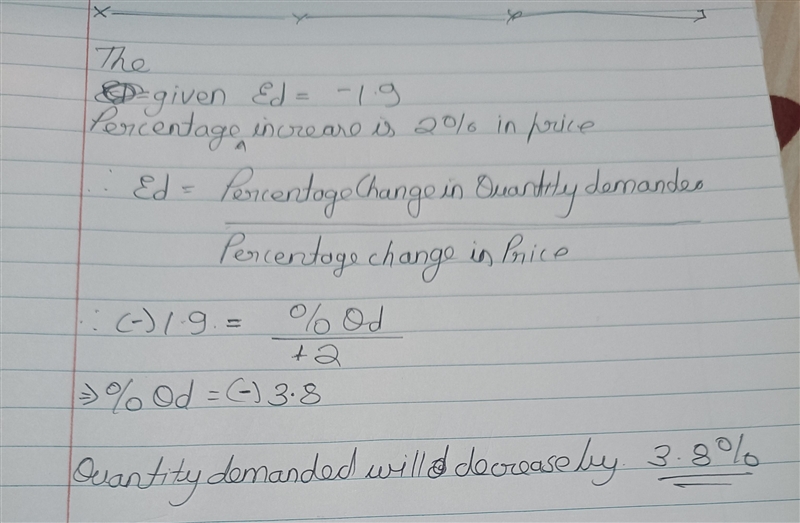 The
given Ed = -1.9
Percentage increase is 2% in price
∴ Ed = Percentage Change in Quantity demanded
Percentage change in Price
∴ (-) 1.9. = % Qd
+2
⇒ % Qd = (-) 3.8
Quantity demanded will decrease by. 3.8%